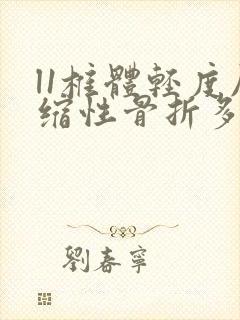 11椎體輕度
缩性骨折多
劉春寧